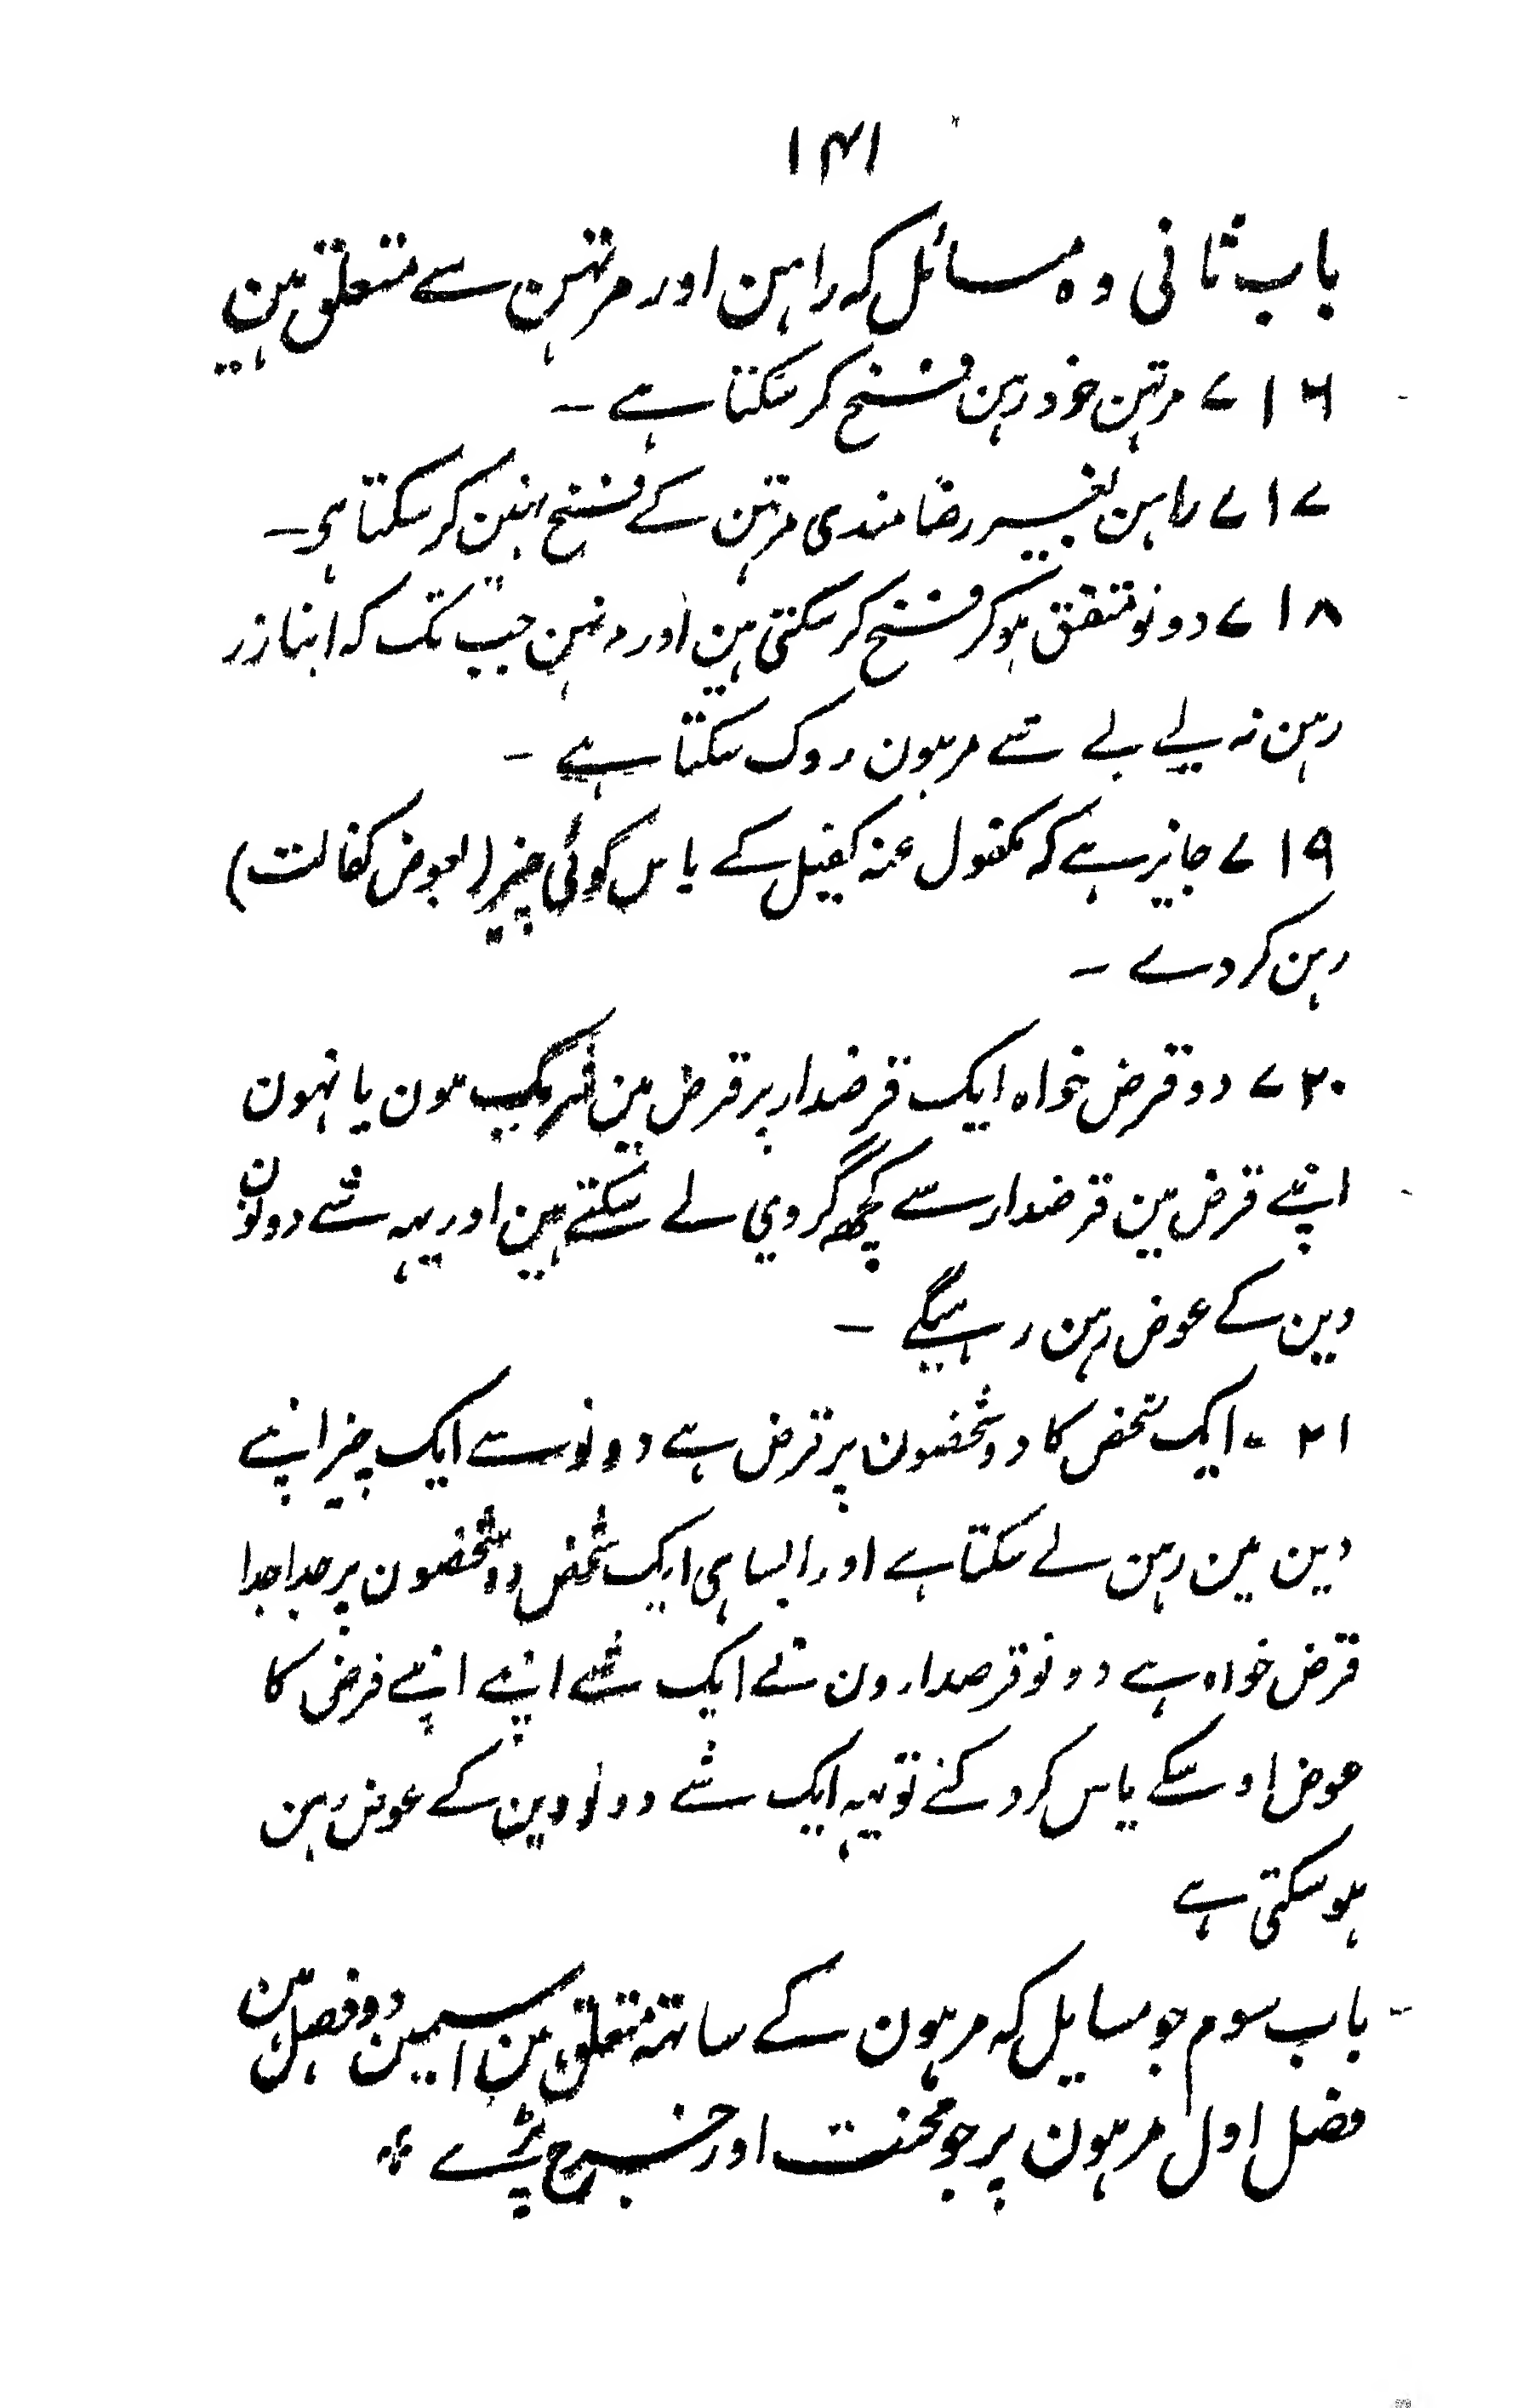 ۱۴۱
باب ثانی وہ مسائل کہ راہن اور مرتہن سے متعلق ہین
۷۱۶ مرتہن خود رہن فسخ کر سکتا ہے ۔
۷۱۷ راہن بغیر رضامندی مرتہن کے فسخ نہین کر سکتا ہی ۔
۷۱۸ دونو متفق ہو کر فسخ کر سکتی ہین اور مرتہن جب تک کہ اپنا زر
رہن نہ لے لے شے مرہون روک سکتا ہے ۔
۷۱۹ جایز ہے کہ مکفول عنہ کفیل کے پاس کوئی چیز (بعوض کفالت)
رہن کر دے ۔
۷۲۰ دو قرض خواہ ایک قرضدار پر قرض مین شریک ہون یا نہون
اپنے قرض مین قرضدار سے کچھ گروی لے سکتے ہین اور یہہ شے دونون
دین کے عوض رہن رہیگے ۔
۲۱ ۔ ایک شخص کا دو شخصون پر قرض ہے دونو سے ایک چیز اپنے
دین مین رہن لے سکتا ہے اور ایسا ہی ایک شخص دو شخصون پر جدا جدا
قرض خواہ ہے دونو قرضدارون نے ایک شے اپنے اپنے قرض کا
عوض اوسکے پاس کرد کئے تو یہہ ایک شے دونو دین کے عوض رہن
ہو سکتی ہے
باب سوم جو مسایل کہ مرہون کے ساتھ متعلق ہین اسمین دو فصل ہین
فصل اول مرہون پر جو محنت اور خرچ پڑے *